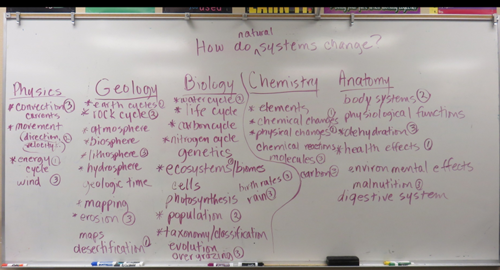 natural
How do ^ systems change?
Physics
*convection ③
currents
*movement
(direction, ②
velocity)
*energy ①
cycle
wind ③
Geology
*earth cycles ①
*rock cycle ③
*atmosphere
*biosphere
*lithosphere ③
*hydrosphere
geologic time
*mapping
*erosion ③
maps
desertification
Biology
*water cycle ③
*life cycle
*carbon cycle
*nitrogen cycle
genetics
*ecosystems/biomes
cells
photosynthesis
*population ②
*taxonomy/classification
evolution
overgrazing ③
birth rates ③
rain ③
Chemistry
*elements
*chemical changes
*physical changes
chemical reactions
molecules
carbon
Anatomy
body systems ②
physiological functions
*dehydration ③
*health effects ①
environmental effects
malnutrition ②
digestive system